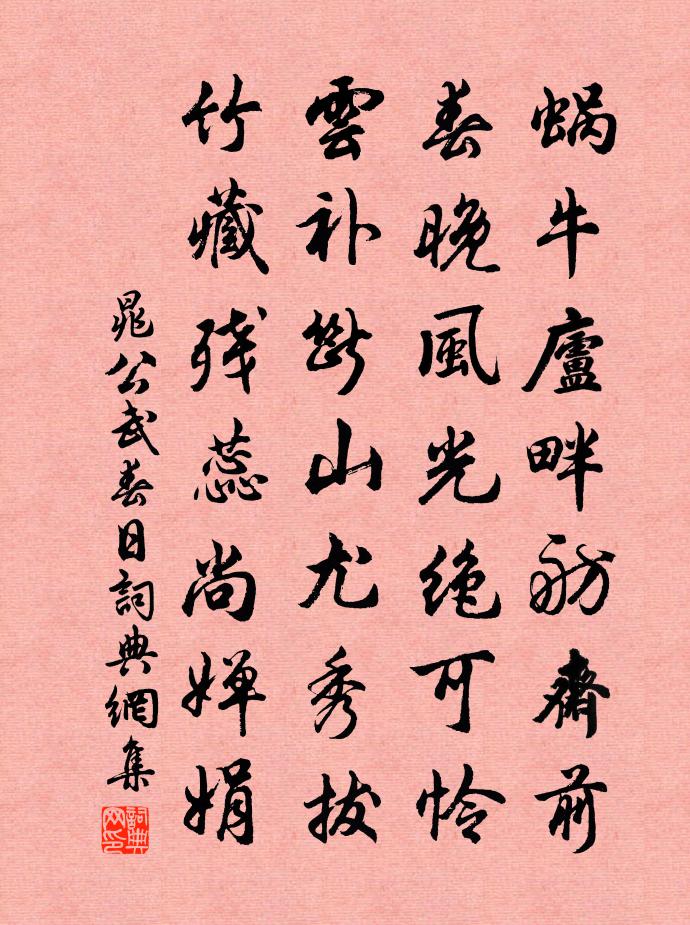 蜗牛廬畔舫齋前
春晚風光絶可怜
雲补斷山尤秀拔
竹藏残蕊尚婵娟
晁公武春日詞典網集
詞典网印